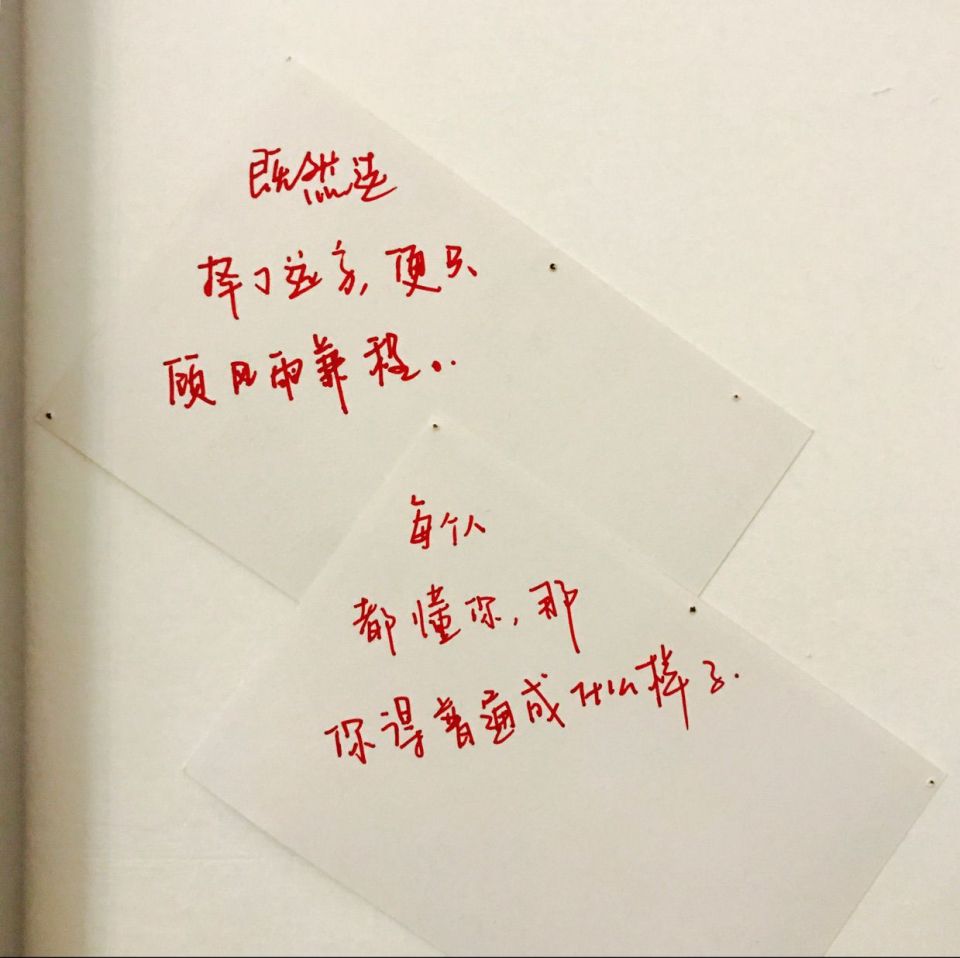 既然选
择了远方,便只
顾风雨兼程。..
每个人
都懂你,那
你得普通成什么样子.